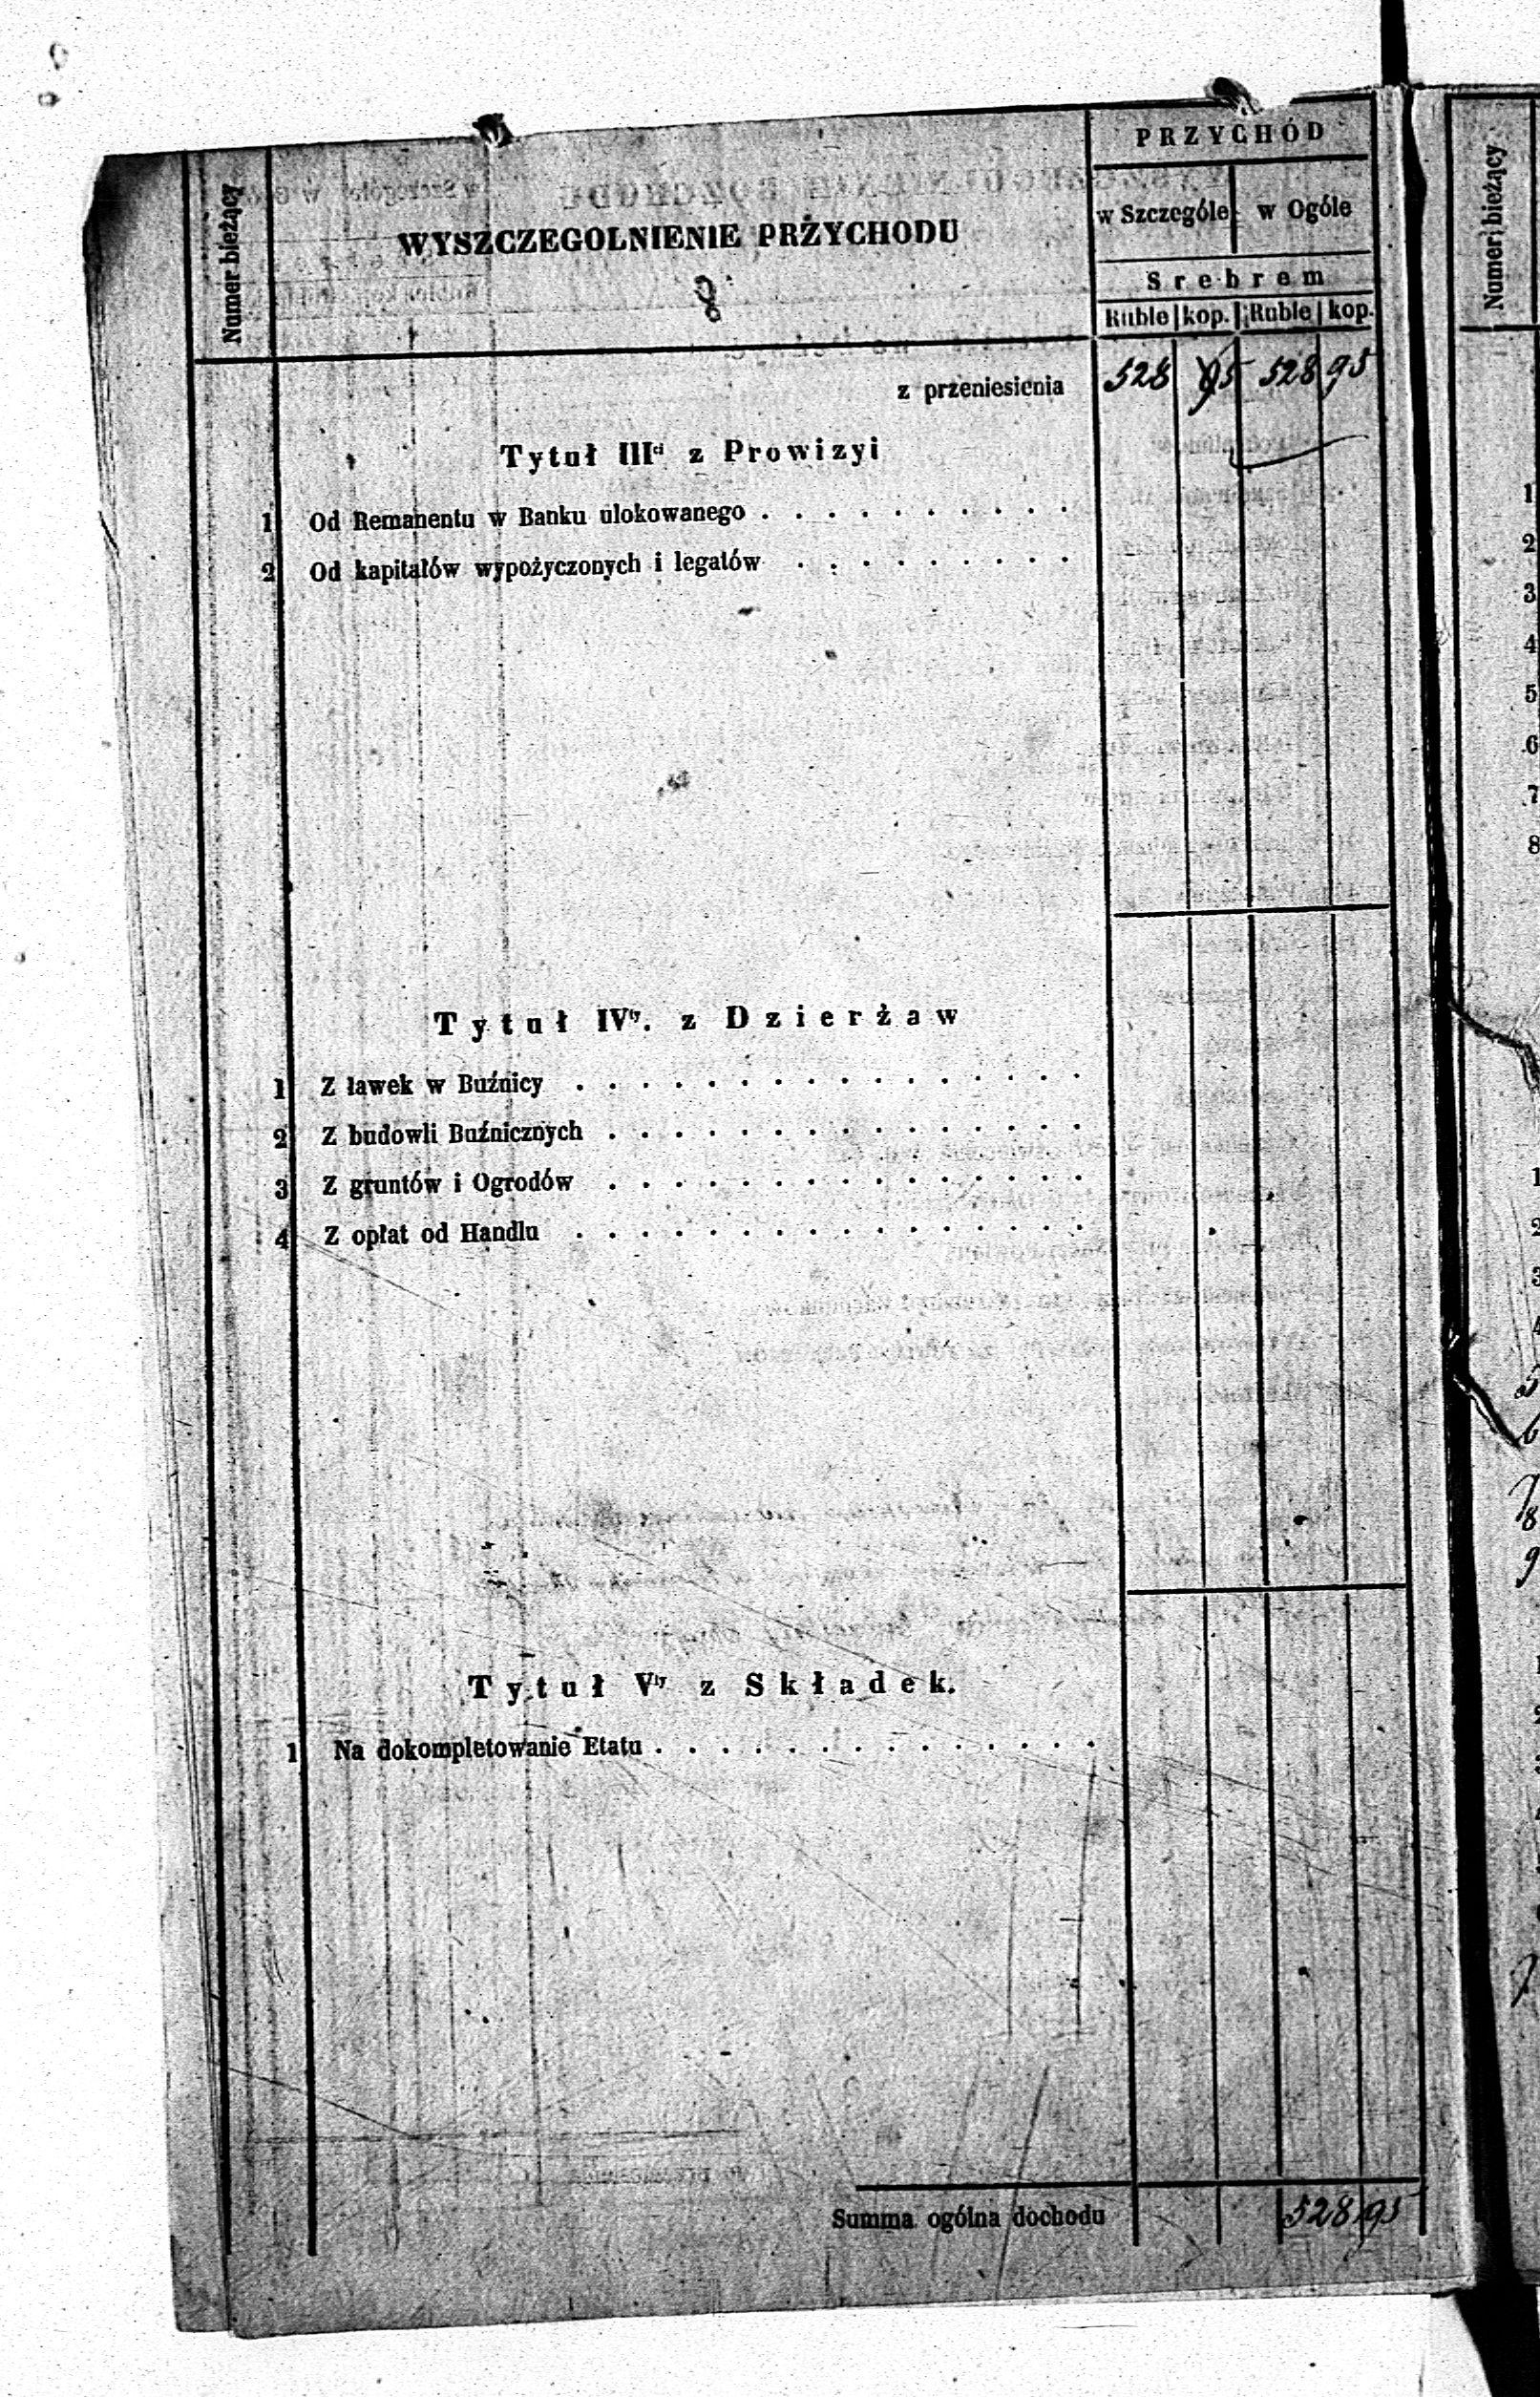 Numer bieżący
WYSZCZEGOLNIENIE PRZYCHODU
PRZYCHÓD
w Szczególe w Ogóle
Srebrem
Ruble kop. Ruble kop.
z przeniesienia 528 95 528 95
Tytuł IIIci z Prowizyi
1 Od Remanentu w Banku ulokowanego . . . . . . . . . .
2 Od kapitałów wypożyczonych i legatów . . . . . . . . .
Tytuł IVty. z Dzierżaw
1 Z ławek w Buźnicy . . . . . . . . . . . . . . . .
2 Z budowli Buźnicznych . . . . . . . . . . . . . . .
3 Z gruntów i Ogrodów . . . . . . . . . . . . . . .
4 Z opłat od Handlu . . . . . . . . . . . . . . . .
Tytuł Vty z Składek.
1 Na dokompletowanie Etatu . . . . . . . . . . . . . .
Summa ogólna dochodu 528 95
Numer bieżący
1
2
3
4
5
6
7
8
1
2
3
4
5
6
7
8
9